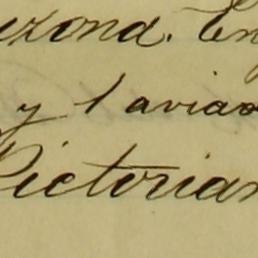 uzona. En
y 1 aviaso
Pictorian